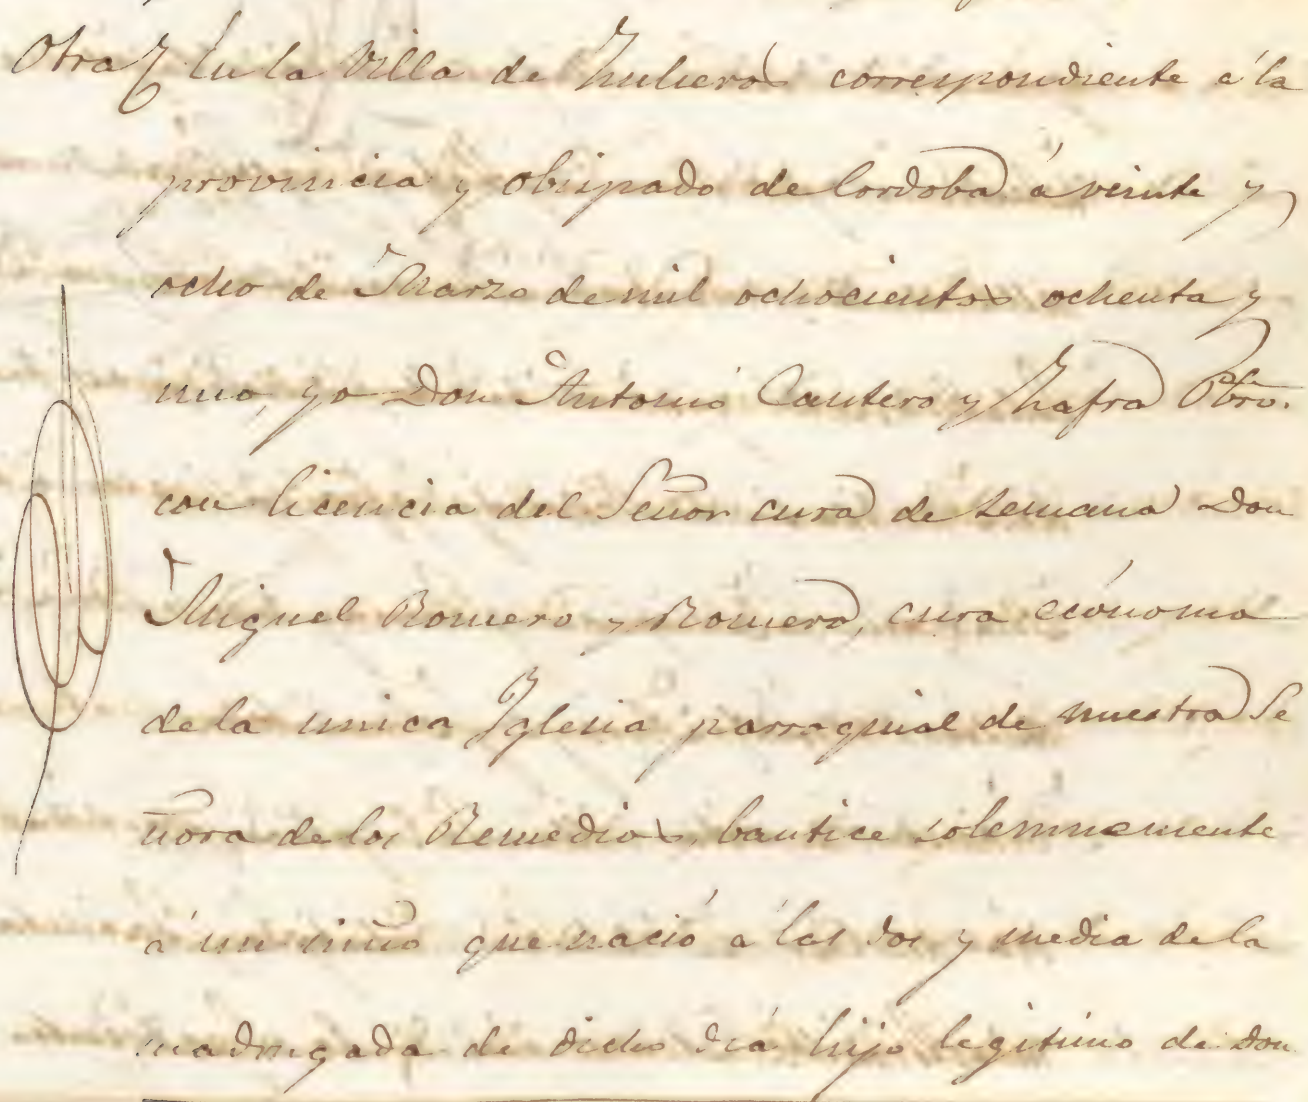 Otra} En la Villa de Zuheros correspondiente á la
provincia y obispado de Cordoba á veinte y
ocho de Marzo de mil ochocientos ochenta y
uno, yo Don Antonio Cantero y Zafra Pbro.
con licencia del Señor cura de semana Don
Miguel Romero y Romero, cura ecónomo
de la unica Iglesia parroquial de nuestra Se
ñora de los Remedios, bautice solemnemente
á un niño que nació á las dos y media de la
madrugada de dicho dia hijo legitimo de Don